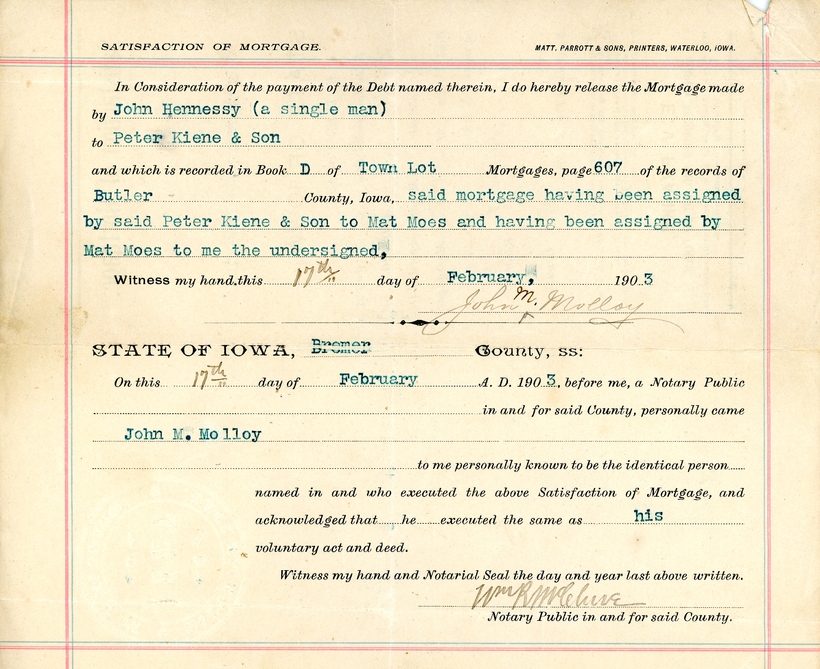 SATISFACTION OF MORTGAGE. MATT. PARROTT & SONS, PRINTERS, WATERLOO, IOWA.
In Consideration of the payment of the Debt named therein, I do hereby release the Mortgage made
by John Hennessy (a single man)
to Peter Kiene & Son
and which is recorded in Book D of Town Lot Mortgages, page 607 of the records of
Butler County, Iowa, said mortgage having been assigned
by said Peter Kiene & Son to Mat Moes and having been assigned by
Mat Moes to me the undersigned,
Witness my hand this 17th day of February, 1903
John M. Molloy
STATE OF IOWA, Bremer County, ss:
On this 17th day of February A. D. 1903, before me, a Notary Public
in and for said County, personally came
John M. Molloy
to me personally known to be the identical person
named in and who executed the above Satisfaction of Mortgage, and
acknowledged that he executed the same as his
voluntary act and deed.
Witness my hand and Notarial Seal the day and year last above written.
Wm R McClure
Notary Public in and for said County.